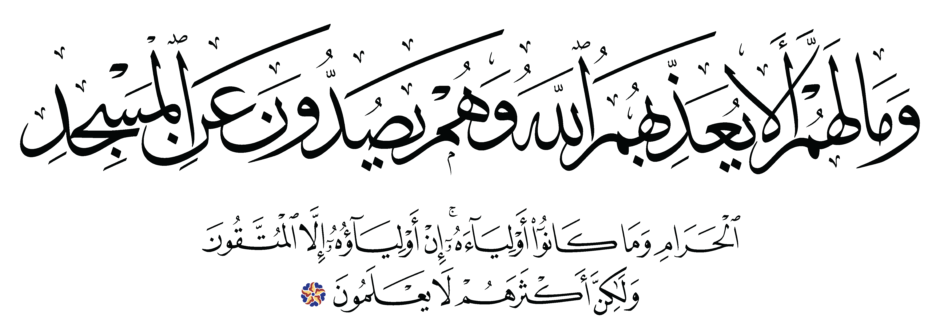 وَمَا لَهُمْ أَلَّا يُعَذِّبَهُمُ ٱللَّهُ وَهُمْ يَصُدُّونَ عَنِ ٱلْمَسْجِدِ
ٱلْحَرَامِ وَمَا كَانُوٓا۟ أَوْلِيَآءَهُۥٓ ۚ إِنْ أَوْلِيَآؤُهُۥٓ إِلَّا ٱلْمُتَّقُونَ
وَلَٰكِنَّ أَكْثَرَهُمْ لَا يَعْلَمُونَ